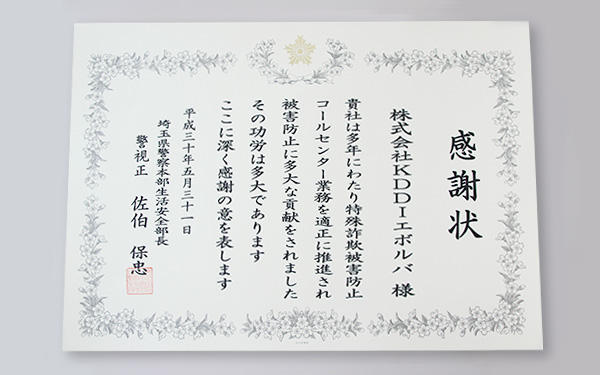 感謝状
株式会社KDDIエボルバ 様
貴社は多年にわたり特殊詐欺被害防止
コールセンター業務を適正に推進され
被害防止に多大な貢献をされました
その功労は多大であります
ここに深く感謝の意を表します
平成三十年五月三十一日
埼玉県警察本部生活安全部長
警視正 佐伯 保忠